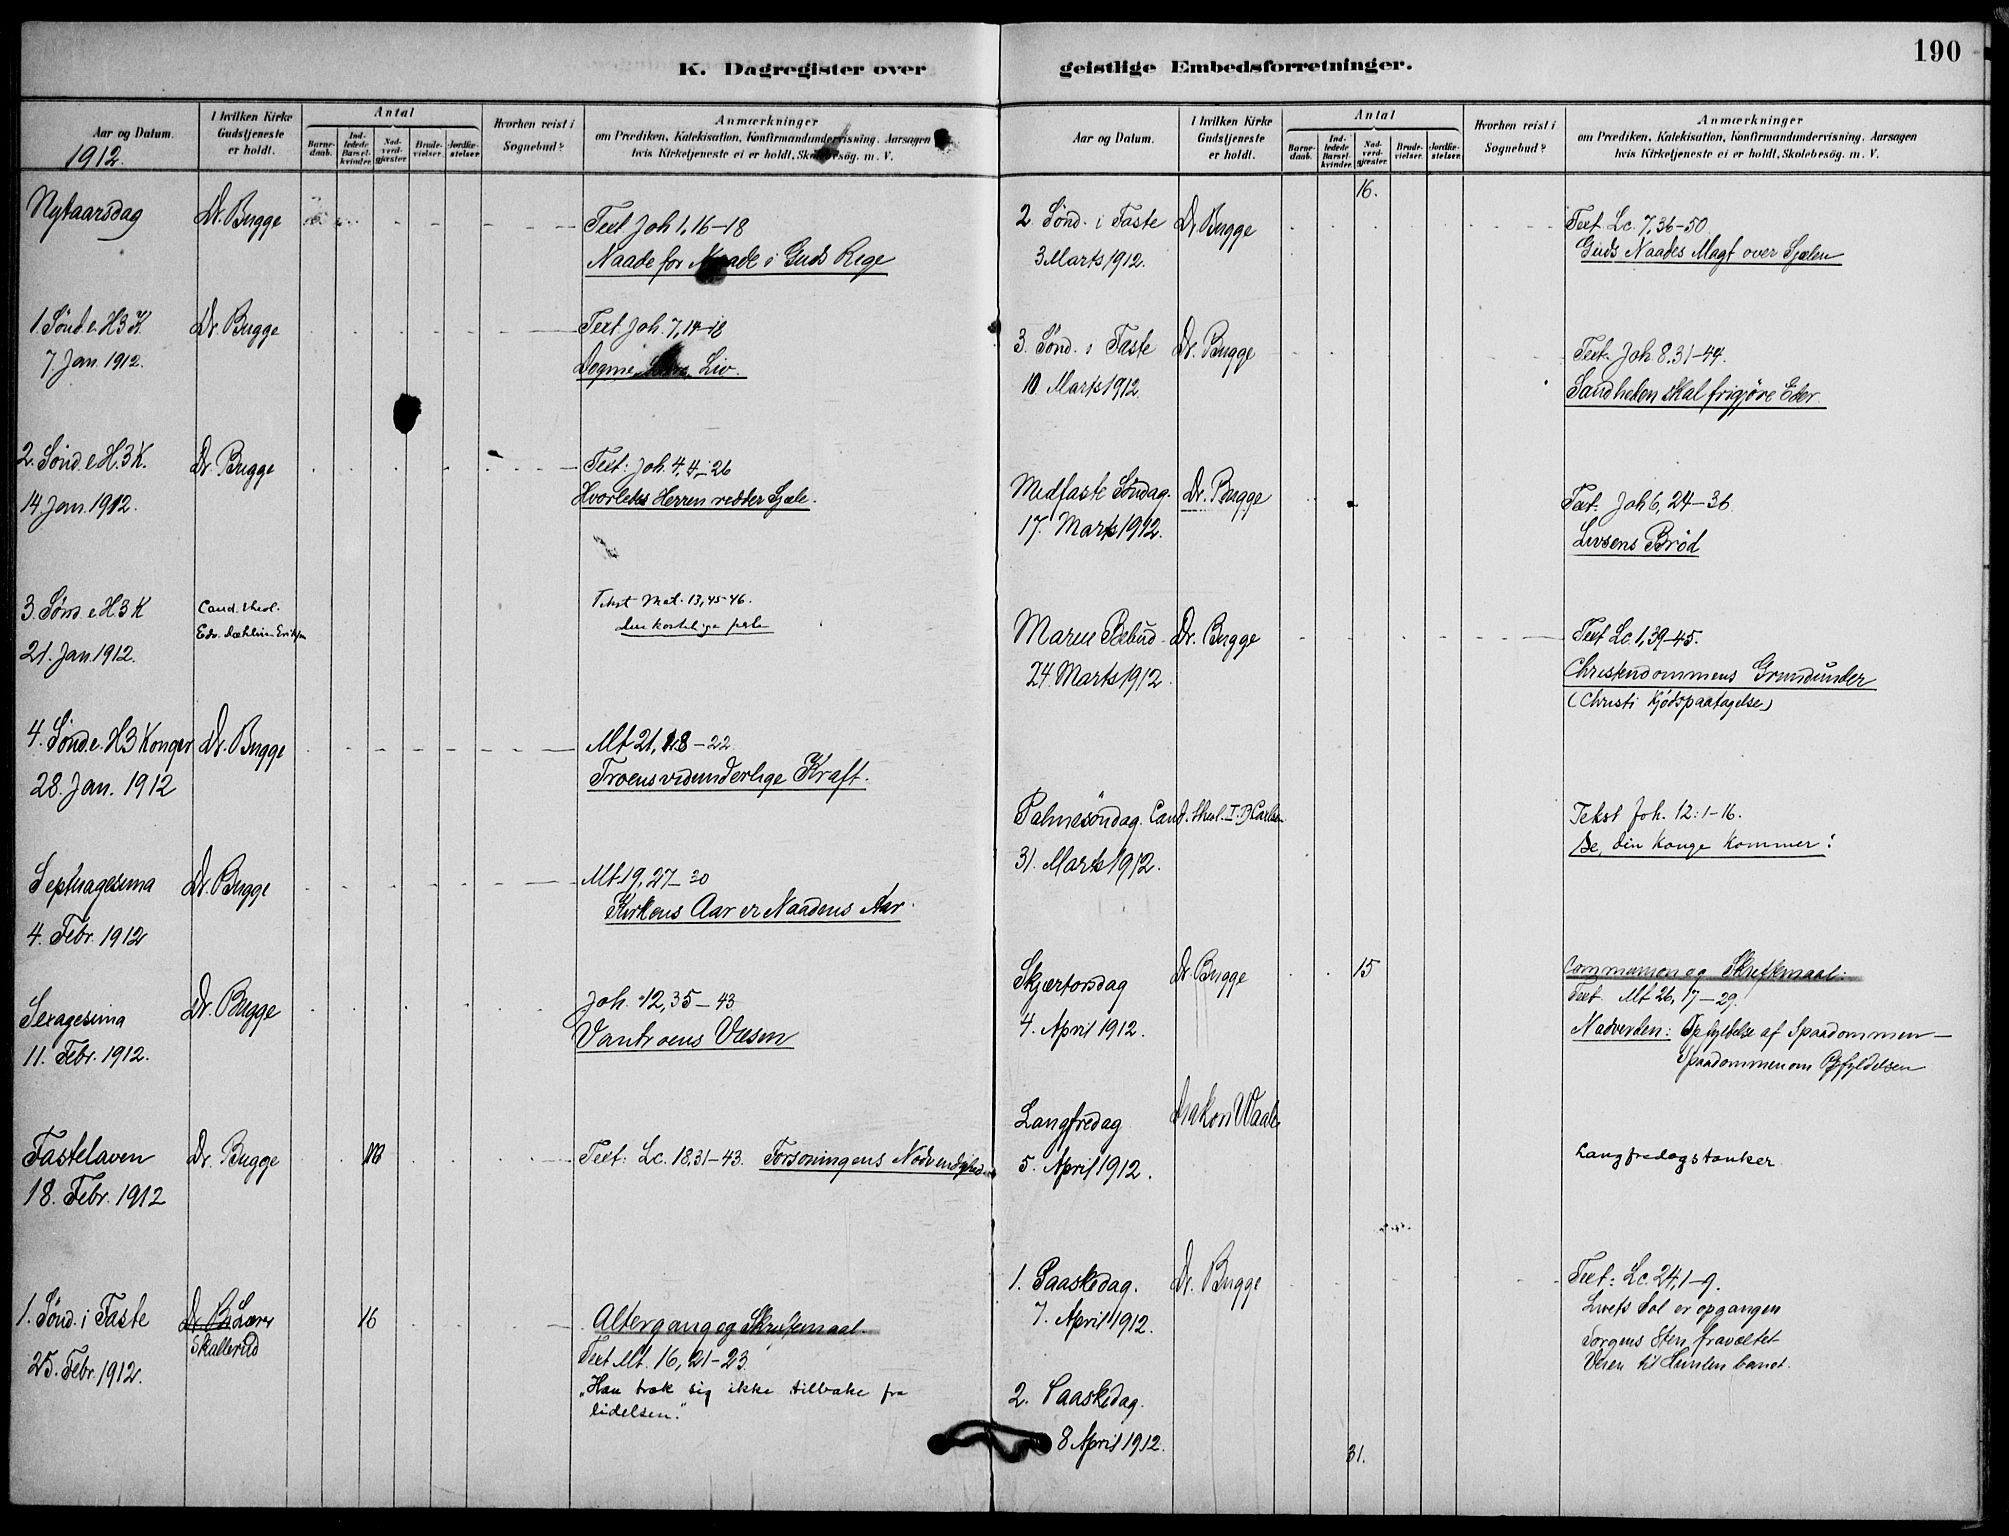 190
K. Dagregister over geistlige Embedsforretninger.
Aar og Datum.
1912.
I hvilken Kirke
Gudstjeneste
er holdt.
Antal
Barne-
daab.
Ind-
ledede
Barsel-
kvinder.
Nad-
verd-
gjæster.
Brude-
vielser.
Jordfæ-
stelser.
Hvorhen reist i
Sognebud?
Anmærkninger
om Prædiken, Katekisation, Konfirmandundervisning, Aarsagen
hvis Kirketjeneste ei er holdt, Skolebesøg. m. V.
Nytaarsdag
Dr. Bugge
Text Joh 1, 16-18
Naade for Naade i Guds Rige
1. Sønd. e. H3K
7. Jan. 1912.
Dr. Bugge
Text. Joh. 7, 14-18
Dogme Liv.
2. Sönd. e. H. 3 K.
14. Jan. 1912.
Dr. Bugge
Text: Joh. 4, 4-26
Hvorledes Herren redder Sjæle.
3. Sønd e H. 3 K
21. Jan 1912.
Cand. theol.
Tekst Mat. 13, 45-46.
den kostelige perle
4. Sønd. e. H3 Konger
28. Jan. 1912
Dr. Bugge
Mt 21, 18-22
Troens vidunderlige Kraft.
Septuagesima
4. Febr. 1912
Dr. Bugge
Mt 19, 27-30
Kirkens Aar er Naadens Aar.
Sexagesima
11. Febr. 1912.
Dr. Bugge
Joh. 12, 35-43
Vantroens Væsen
Fastelaven
18. Febr. 1912
Dr. Bugge
Text: Lc. 18, 31-43. Forsoningens Nødvendighed
1. Sønd. i Faste
25. Febr. 1912.
Lærer
Skallerud
16
Altergang og Skriftemaal.
Text Mt. 16, 21-23.
"Han trak sig ikke tilbake fra
lidelsen."
Aar og Datum.
I hvilken Kirke
Gudstjeneste
er holdt.
Antal
Barne-
daab.
Ind-
ledede
Barsel-
kvinder.
Nad-
verd-
gjæster.
Brude-
vielser.
Jordfæ-
stelser.
Hvorhen reist i
Sognebud?
Anmærkninger
om Prædiken, Katekisation, Konfirmandundervisning, Aarsagen
hvis Kirketjeneste ei er holdt, Skolebesøg. m. V.
16.
2. Sønd. i Faste
3 Marts 1912.
Dr. Bugge
Text Lc. 7, 36-50
Guds Naades Magt over Sjælen
3. Sønd. i Faste
10 Marts 1912
Dr. Bugge
Text. Joh. 8, 31-44.
Sandheden skal frigjøre Eder
Midfaste Søndag.
17. Marts 1912.
Dr. Bugge
Text: Joh 6, 24-36
Livsens Brød
Mariæ Bebud.
24. Marts 1912
Dr. Bugge
Text Lc. 1, 39-45.
Christendommens Grundunder
(Christi Kjødspaatagelse)
Palmesöndag.
31. Marts 1912.
Cand. theol. I. D. Carlsen
Tekst Joh. 12: 1-16.
Se, din konge kommer!
Skjærtorsdag
4. April 1912.
Dr. Bugge
15
Communion og Skriftemaal.
Text. Mt 26, 17-29.
Nadverden: Opfyldelse af Spaadommen –
Spaadommen om Opfyldelsen
Langfredag
5. April 1912.
Diakon Waaler
Langfredagstanker
1. Paaskedag.
7. April 1912.
Dr. Bugge
Text: Lc. 24, 1-9.
Livets Sol er opgangen
Sorgens Sten fravæltet
Veien til Himlen banet.
2. Paaskedag.
8 April 1912.
31.